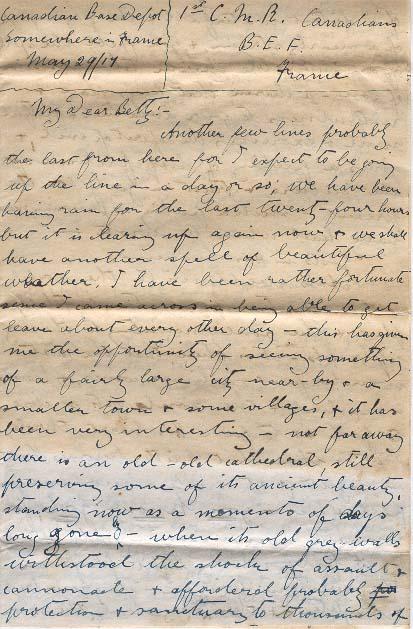 Canadian Base Depot
Somewhere in France
May 29/17
1st C. M. R. Canadians
B. E. F.
France
My Dear Betty:-
Another few lines probably
the last from here for I expect to be going
up the line in a day or so, we have been
having rain for the last twenty four hours
but it is clearing up again now & we shall
have another spell of beautiful
weather. I have been rather fortunate
since I came across in being able to get
leave about every other day - this has given
me the opportunity of seeing something
of a fairly large city near-by & a
smaller town & some villages, & it has
been very interesting - not far away
there is an old - old cathedral, still
preserving some of its ancient beauty,
standing now as a memento of days
long gone - when its old grey walls
withstood the shock of assault &
cannonade & afforded probably
protection & sanctuary to thousands of